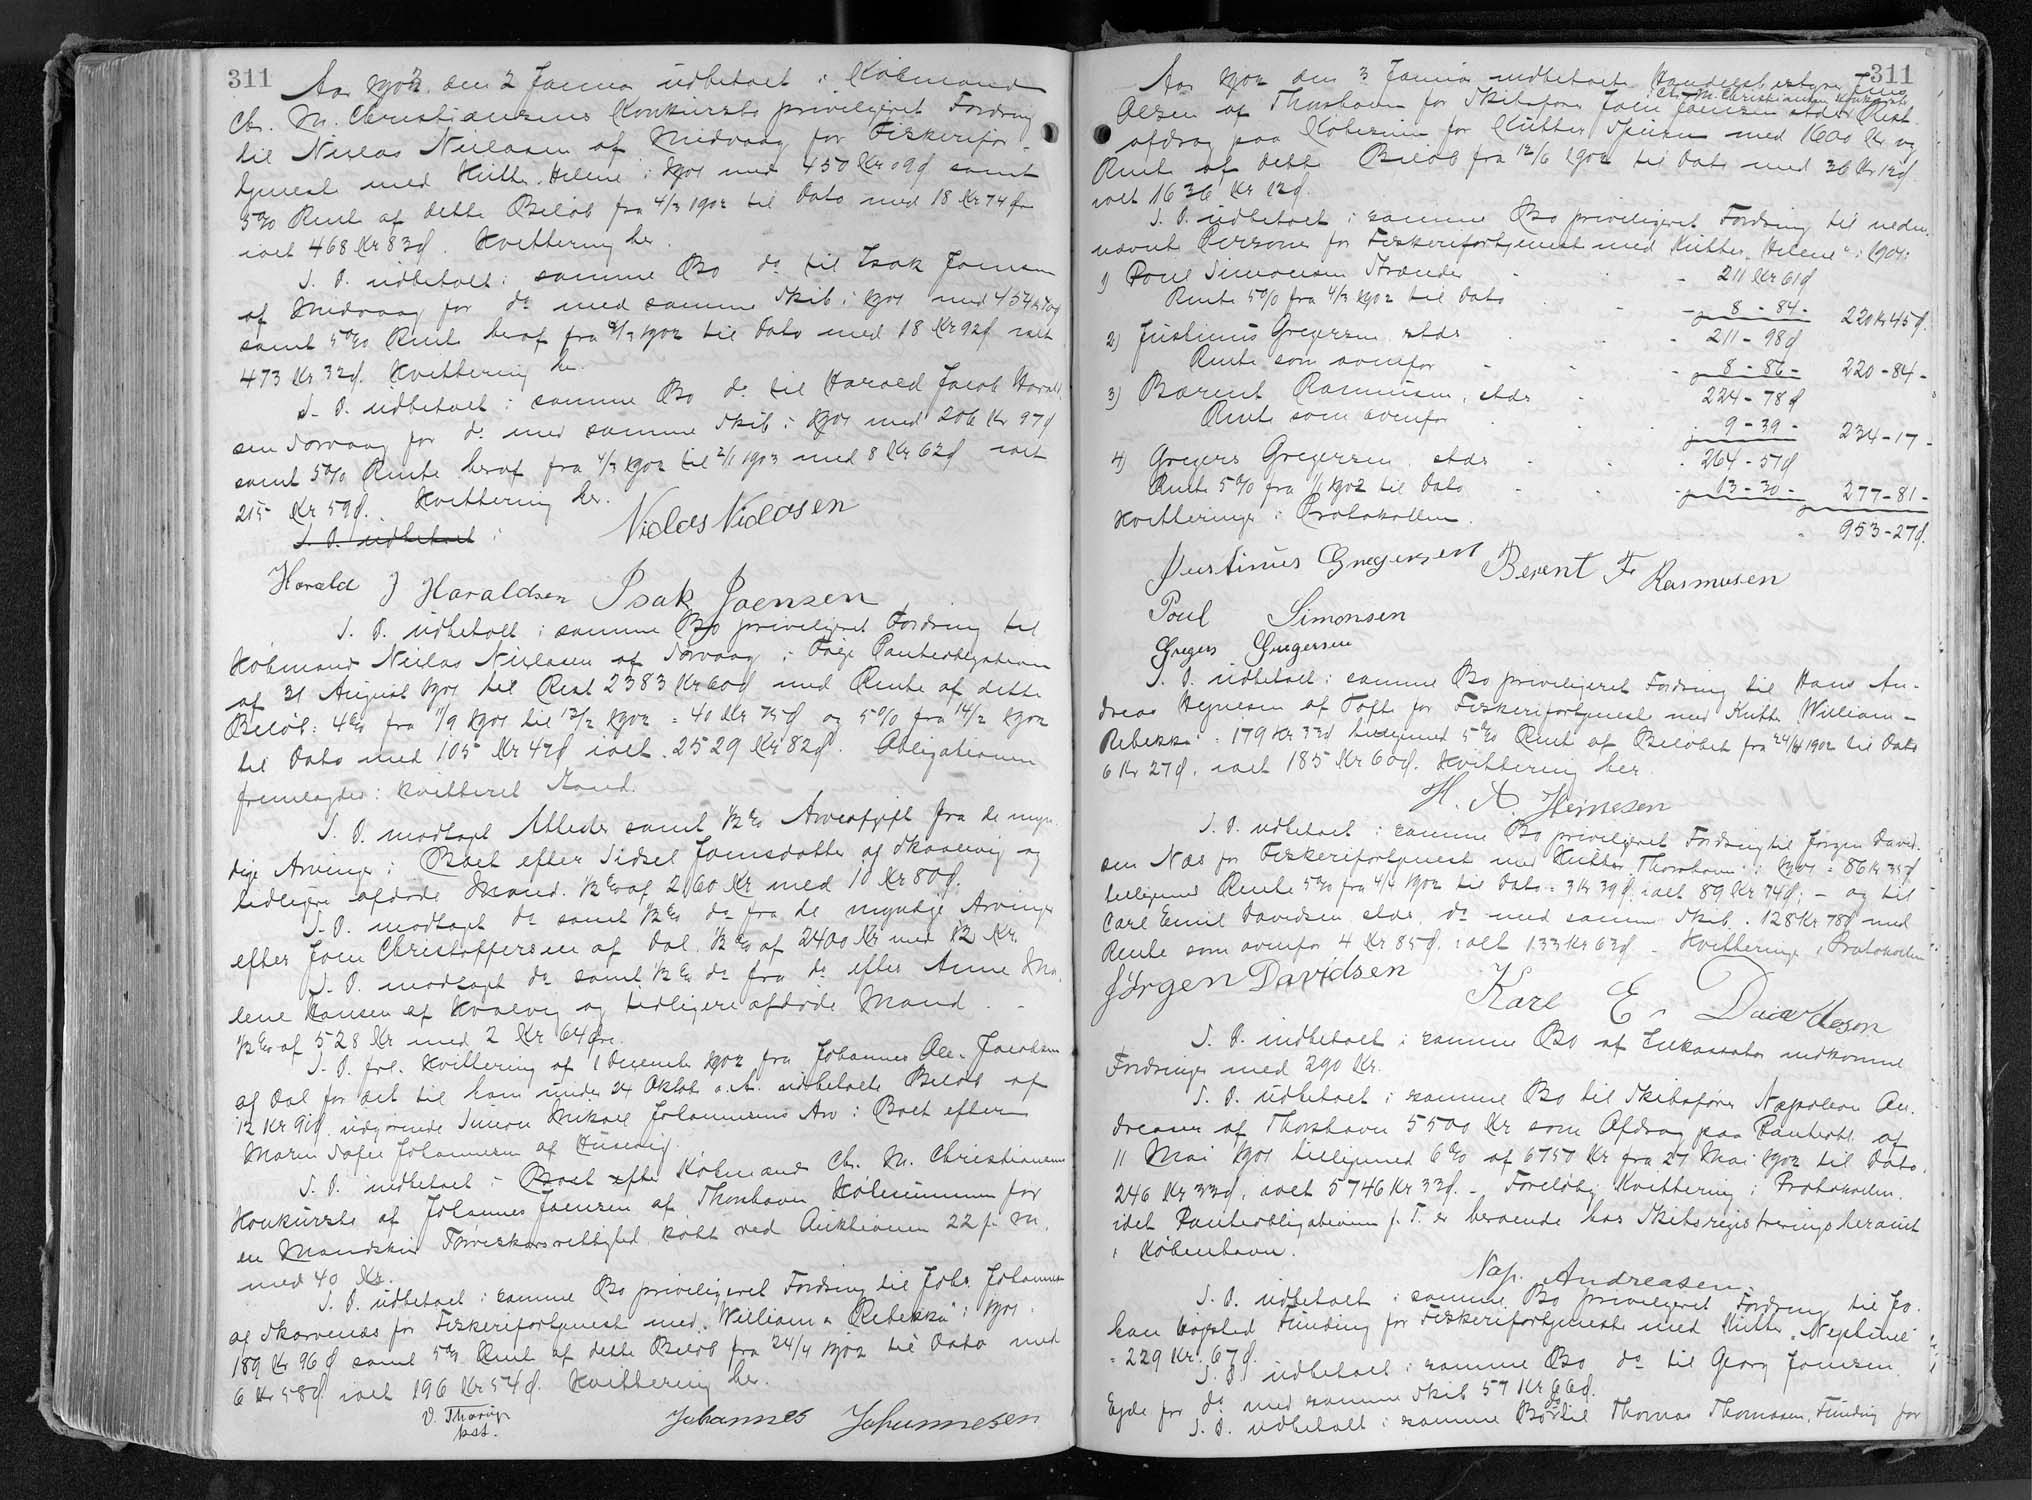 311
Aar 1903 den 2 Januar udbetalt i Købmand
Chr. M. Christiansens Konkursbo privilegeret Fordring
til Niclas Niclasen af Midvaag for Fiskerifor-
tjeneste med Kutter "Helene" i 1901 med 450 Kr 09 Ø samt
5% Rente af dette Beløb fra 4/3 1902 til Dato med 18 Kr 74 Øre
ialt 468 Kr 83 Ø. Kvittering her.
S. D. udbetalt i samme Bo do til Isak Joensen
af Midvaag for do med samme Skib i 1901 med 454 Kr 40 Ø
samt 5% Rente heraf fra 4/3 1902 til Dato med 18 Kr 92 Ø ialt
473 Kr 32 Ø. Kvittering her.
S. D. udbetalt i samme Bo do til Harald Jacob Harald-
sen Sørvaag for do med samme Skib i 1901 med 206 Kr 97 Ø
samt 5% Rente heraf fra 4/3 1902 til 2/1 1903 med 8 Kr 62 Ø ialt
215 Kr 59 Ø. Kvittering her.
S. D. udbetalt i
Niclas Niclasen
Harald J Haraldsen Isak Joensen
S. D. udbetalt i samme Bo privilegeret Fordring til
Købmand Niclas Niclasen af Sørvaag i Følge Panteobligation
af 31 August 1901 til Rest 2383 Kr 60 Ø med Rente af dette
Beløb: 4% fra 11/9 1901 til 13/2 1902 = 40 Kr 75 Ø og 5% fra 14/2 1902
til Dato med 105 Kr 47 Ø ialt 2529 Kr 82 Ø. Obligationen
fremlagdes i kvitteret Stand.
S. D. modtaget Attester samt 1/2 % Arveafgift fra de myn-
dige Arvinger i Boet efter Sidsel Joensdatter af Skaalevig og
tidligere afdøde Mand. 1/2 % af 2160 Kr med 10 Kr 80 Ø.
S. D. modtaget do samt 1/2 % do fra de myndige Arvinger
efter Joen Christoffersen af Dal. 1/2 % af 2400 Kr med 12 Kr.
S. D. modtaget do samt 1/2 % do fra do efter Anne Ma-
lene Hansen af Hvalvig og tidligere afdøde Mand.
1/2 % af 528 Kr med 2 Kr 64 Øre.
S. D. frl. Kvittering af 1 Decembr 1902 fra Johannes Ole Jacobsen
af Dal for det til ham under 24 Oktbr a.A. udbetalte Beløb af
12 Kr 91 Ø udgørende Simon Mikael Johannesens Arv i Boet efter
Maren Sofie Johannesen af Husevig.
S. D. indbetalt i Boet efter Købmand Chr. M. Christiansens
Konkursbo af Johannes Joensen af Thorshavn Købesummen for
en Mandskin Tørveskærsrettighed købt ved Auktionen 22 f. M.
med 40 Kr.
S. D. udbetalt i samme Bo privilegeret Fordring til Johs. Johannesen
af Skarvenæs for Fiskerifortjeneste med "William & Rebekka" i 1901
189 Kr 96 Ø samt 5% Rente af dette Beløb fra 24/4 1902 til Dato med
6 Kr 58 Ø ialt 196 Kr 54 Ø. Kvittering her.
V. Thorup
kst.
Johannes Johannesen
311
Aar 1903 den 3 Januar indbetalte Handelsbestyrer Jens
Olsen af Thorshavn for Skibsfører Joen Joensen stds i Chr. M. Christiansens Konkursbo Rest-
afdrag paa Købesum for Kutter Spurn med 1600 Kr og
Rente af dette Beløb fra 12/6 1902 til Dato med 36 Kr 12 Ø
ialt 1636 Kr 12 Ø.
S. D. udbetalt i samme Bo privilegeret Fordring til neden-
nævnte Personer for Fiskerifortjeneste med Kutter "Helene" i 1901:
1) Poul Simonsen Strænder - 211 Kr 61 Ø
Rente 5% fra 4/3 1902 til Dato - 8 - 84 - 220 Kr 45 Ø.
2) Justinus Gregersen stds - 211 - 98 Ø
Rente som ovenfor - 8 - 86 - 220 - 84 -
3) Barent Rasmussen, stds - 224 - 78 Ø
Rente som ovenfor - 9 - 39 - 234 - 17 -
4) Gregers Gregersen stds - 264 - 51 Ø
Rente 5% fra 1/1 1902 til Dato - 13 - 30 - 277 - 81 -
Kvitteringer i Protokollen. - 953 - 27 Ø.
Justinus Gregersen Berent Fr Rasmusen
Poul Simonsen
Gregers Gregersen
S. D. udbetalt i samme Bo privilegeret Fordring til Hans An-
dreas Heynesen af Tofte for Fiskerifortjeneste med Kutter William -
Rebekka: 179 Kr 33 Ø tilligemed 5% Rente af Beløbet fra 24/4 1902 til Dato
6 Kr 27 Ø, ialt 185 Kr 60 Ø. Kvittering her
H. A. Heinesen
S. D. udbetalt i samme Bo privilegeret Fordring til Jørgen David-
sen Næs for Fiskerifortjeneste med Kutter "Thorshavn" i 1901 = 86 Kr 35 Ø
tilligemed Rente 5% fra 4/4 1902 til Dato = 3 Kr 39 Ø, ialt 89 Kr 74 Ø; - og til
Carl Emil Davidsen stds do med samme Skib. 128 Kr 78 Ø med
Rente som ovenfor 4 Kr 85 Ø, ialt 133 Kr 63 Ø - Kvitteringer i Protokollen
Jörgen Davidsen Karl E. Davidsen
S. D. indbetalt i samme Bo af Inkassator indkomne
Fordringer med 290 Kr.
S. D. udbetalt i samme Bo til Skibsfører Napoleon An-
dreasen af Thorshavn 5500 Kr som Afdrag paa Panteobl. af
11 Mai 1901 tilligemed 6% af 6750 Kr fra 27 Mai 1902 til Dato,
246 Kr 33 Ø, ialt 5746 Kr 33 Ø - Foreløbig Kvittering i Protokollen.
idet Panteobligationen p. T. er beroende hos Skibsregistreringsbureauet
i København.
Nap. Andreasen.
S. D. udbetalt i samme Bo privilegeret Fordring til Jo-
han Funding for Fiskerifortjeneste med Kutter "Neptune"
= 229 Kr. 67 Ø.
S. D. udbetalt i samme Bo do til Georg Joensen
Ejde for do med samme Skib 57 Kr 66 Ø.
S. D. udbetalt i samme Bo do til Thomas Thomasen, Funding for